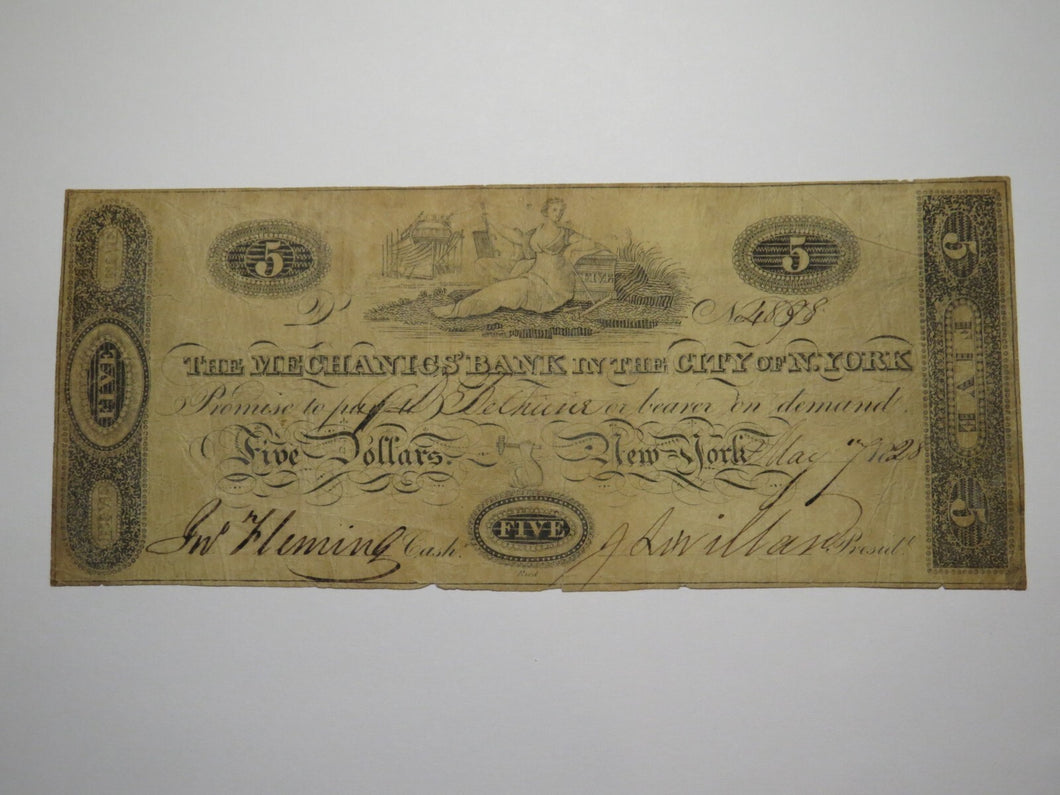 5 5
FIVE
D No 4898
THE MECHANICS' BANK IN THE CITY OF N. YORK
Promise to pay or bearer on demand
Five Dollars. New-York May 7 1828
Jno. Fleming Cash. FIVE Presidt.
FIVE
FIVE
FIVE
5 FIVE 5